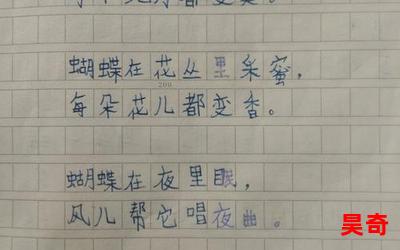 蝴蝶在花丛里采蜜，
200
每朵花儿都变香。
蝴蝶在夜里眠，
风儿帮它唱夜曲。
昊奇